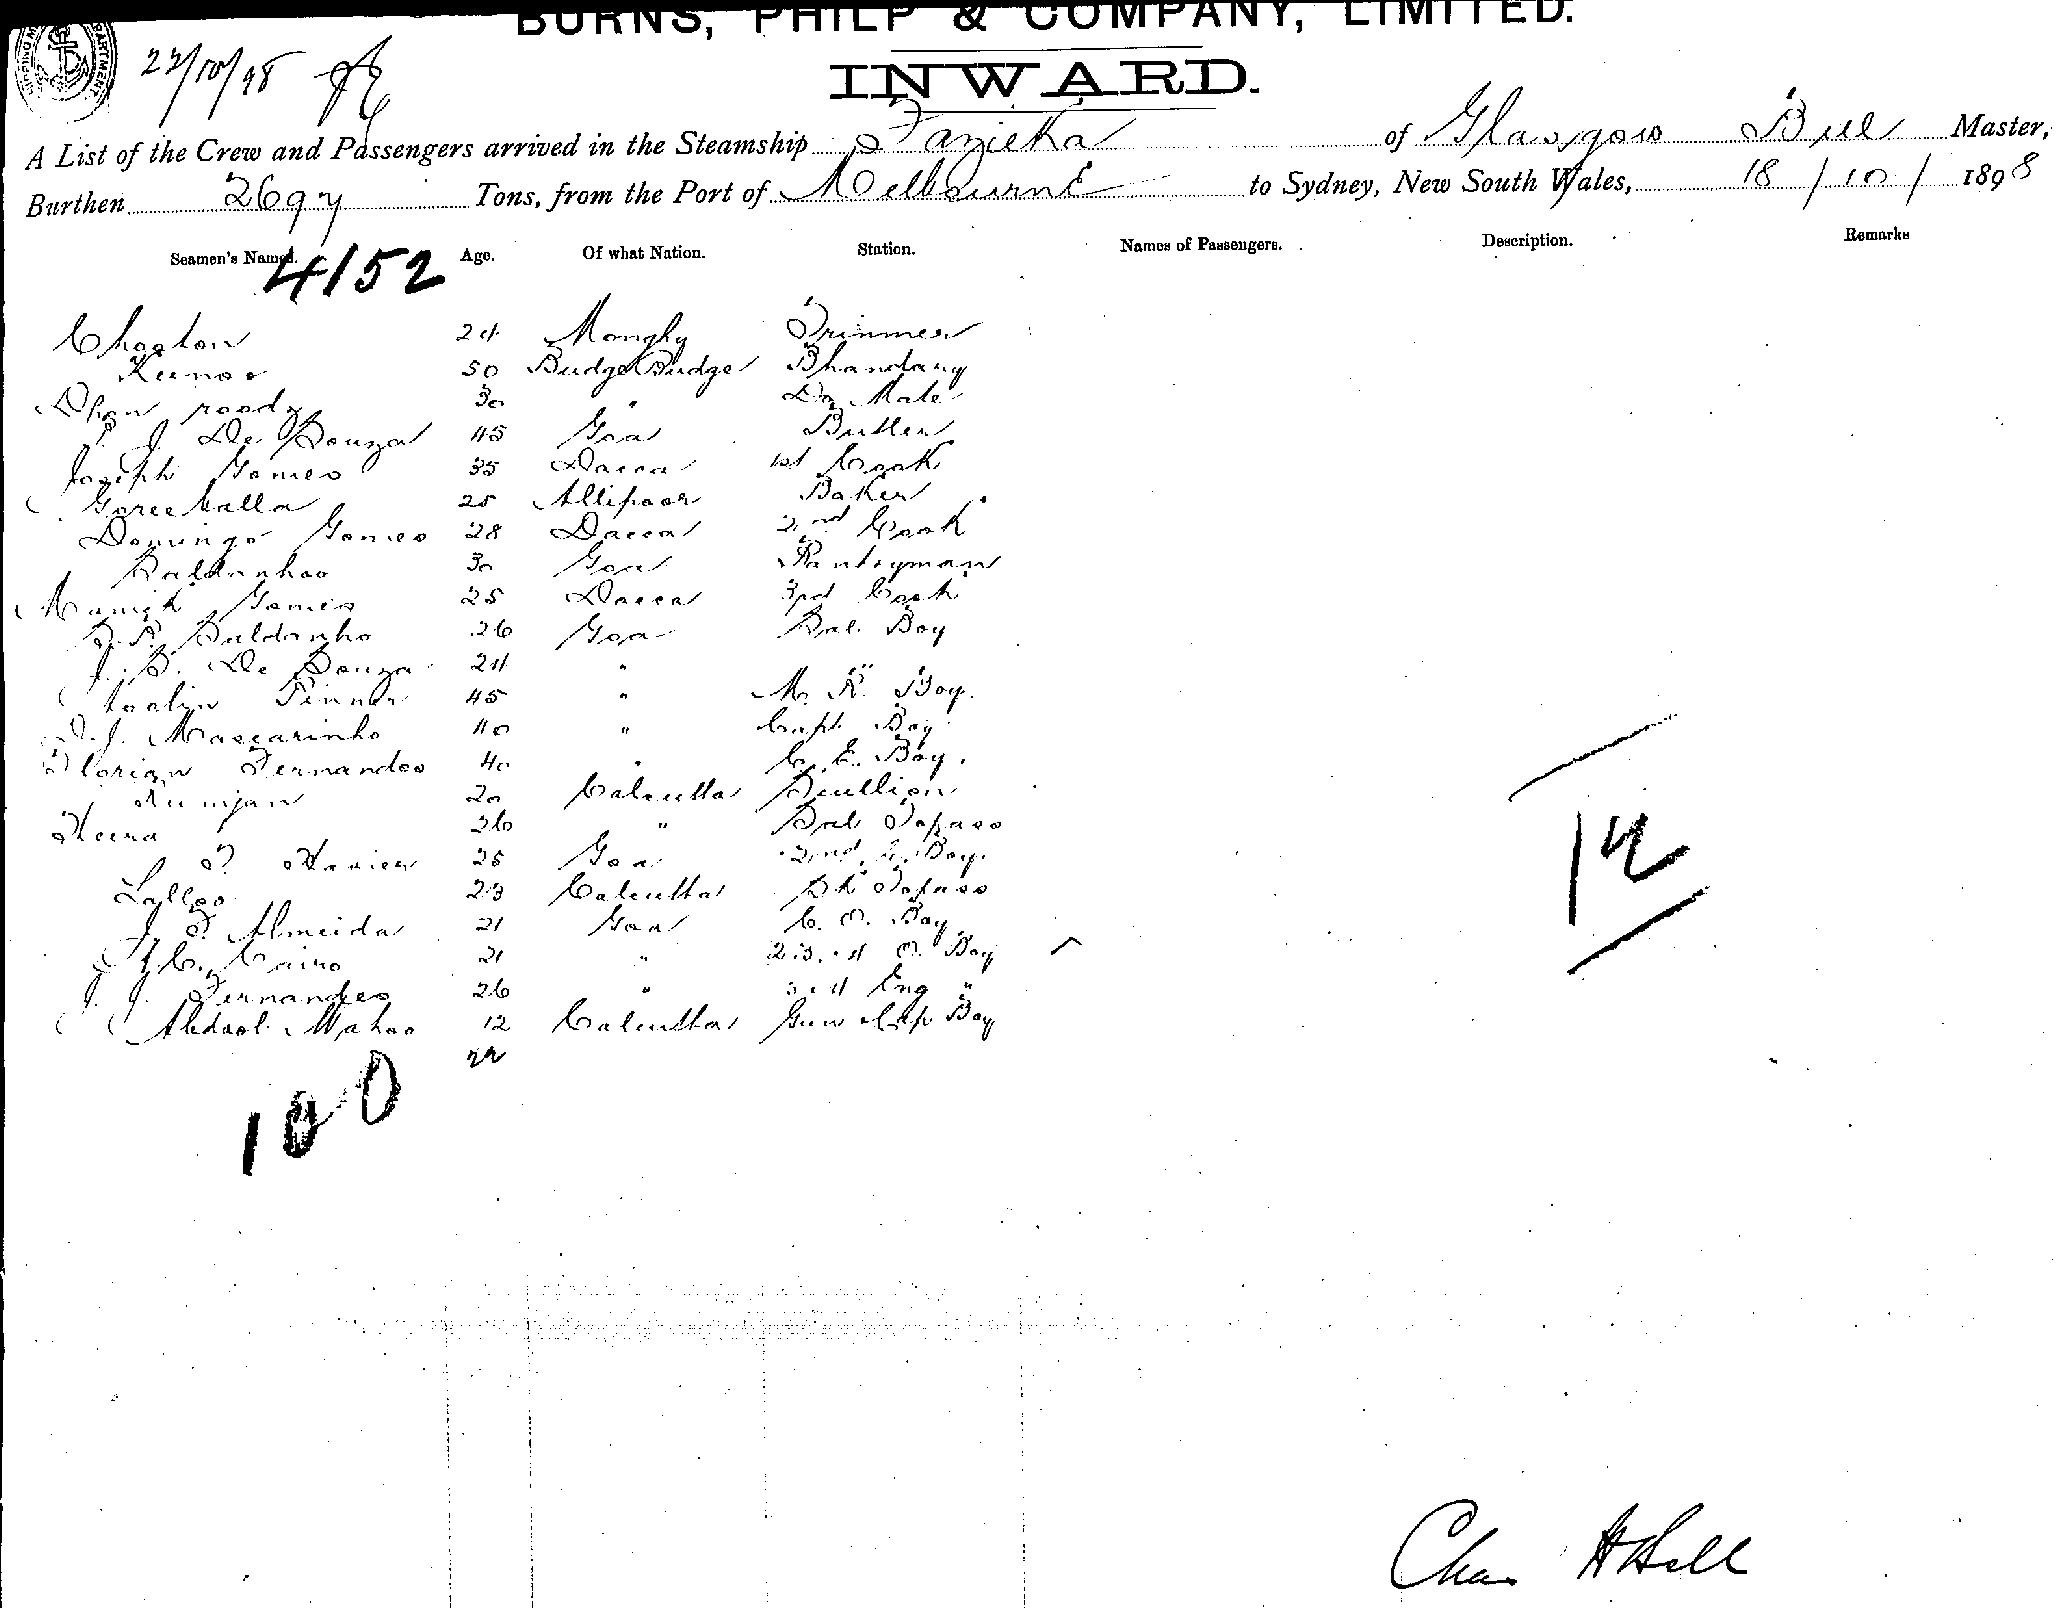 BURNS, PHILP & COMPANY, LIMITED.
INWARD.
22/10/98
A List of the Crew and Passengers arrived in the Steamship Fazilka of Glasgow Bell Master,
Burthen 2697 Tons, from the Port of Melbourne to Sydney, New South Wales, 18/10/1898
Seamen's Names. Age. Of what Nation. Station. Names of Passengers. Description. Remarks
4152
24 Monghy Trimmer
50 Budge Budge Bhandary
30 " Do Mate
De Souza 45 Goa Butler
Joseph Gomes 35 Dacca 1st Cook
25 Allipoor Baker
Domingo Gomes 28 Dacca 2nd Cook
Saldanhao 30 Goa Pantryman
Gomes 25 Dacca 3rd Cook
Saldanho 26 Goa Sal. Boy
J. S. De Souza 24 " "
45 " M. R. Boy.
J. Mascarinho 40 " Capt Boy
Florian Fernandes 40 " C. E. Boy.
Rumjan 20 Calcutta Scullion
Heera 26 " Sal. Topass
Xavier 25 Goa 2nd Boy.
Lalloo 23 Calcutta Topass
J. F. Almeida 21 Goa C. O. Boy
21 " 2.3.4 O. Boy
J. J. Fernandes 26 " 3.4 Eng "
Abdool 12 Calcutta Boy
22
100
12
Chas H Bell